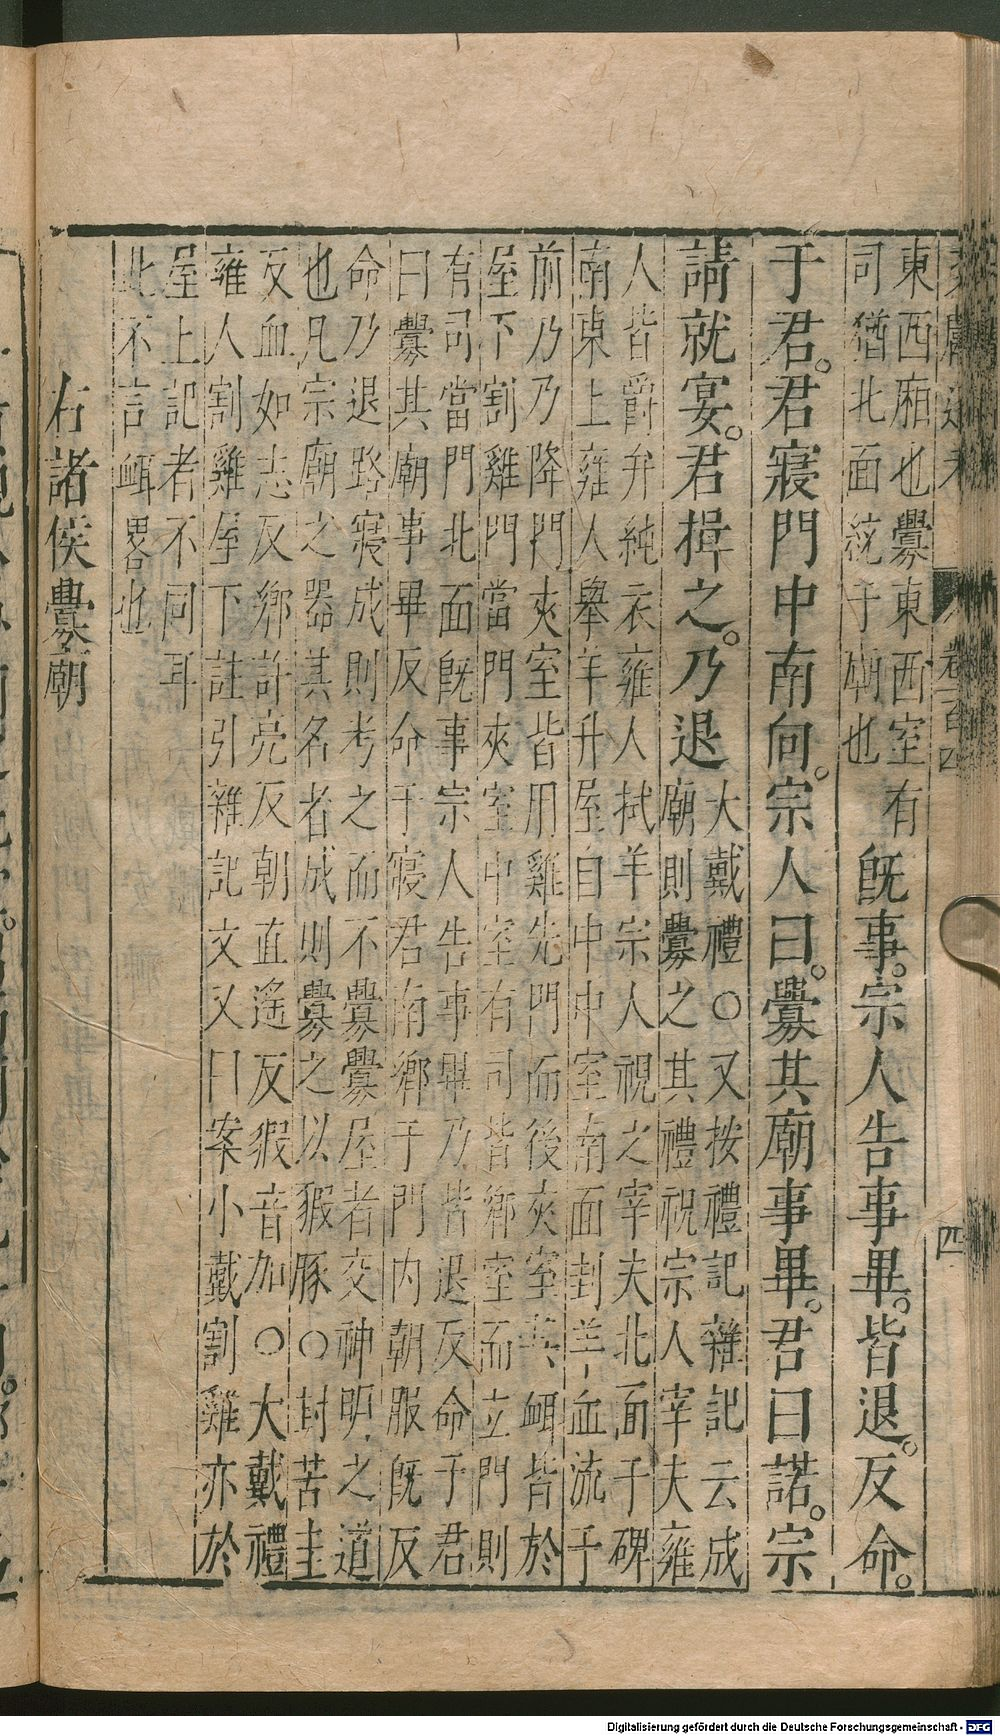 東西廂也釁東西室有
司猶北面統于廟也
既事。宗人告事畢。皆退。反命。
于君。君寢門中南向。宗人曰。釁其廟事畢。君曰諾。宗
請就宴。君揖之。乃退
大戴禮○又按禮記雜記云成
廟則釁之其禮祝宗人宰夫雍
人皆爵弁純衣雍人拭羊宗人視之宰夫北面于碑
南東上雍人舉羊升屋自中中室南面刲羊血流于
前乃乃降門夾室皆用雞先門而後夾室其衈皆於
屋下割雞門當門夾室中室有司皆鄉室而立門則
有司當門北面既事宗人告事畢乃皆退反命于君
曰釁其廟事畢反命于寢君南鄉于門内朝服既反
命乃退路寢成則考之而不釁釁屋者交神明之道
也凡宗廟之器其名者成則釁之以豭豚○刲苦圭
反血如志反鄉許亮反朝直遙反豭音加○大戴禮
雍人割雞屋下註引雜記文又曰案小戴割雞亦於
屋上記者不同耳
此不言衈畧也
右諸侯釁廟
卷百四
四
Digitalisierung gefördert durch die Deutsche Forschungsgemeinschaft - DFG